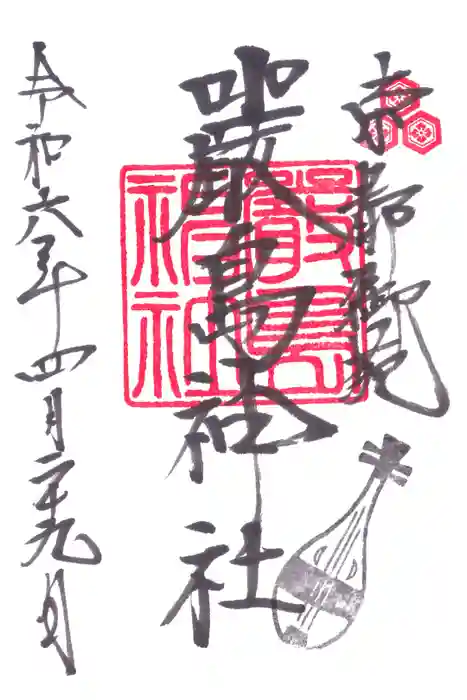 京都御苑
嚴島神社
嚴島
神社
令和六年四月二十九日